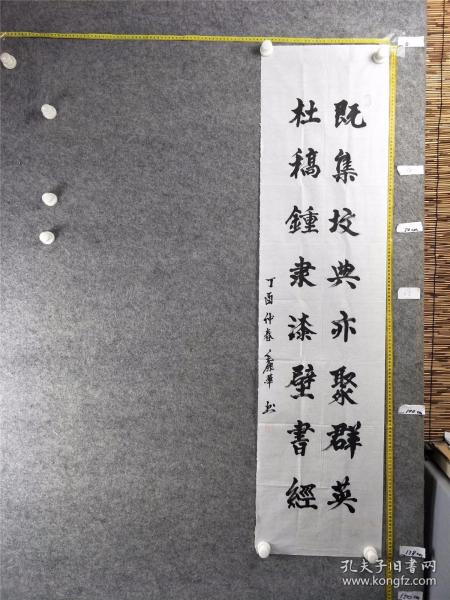 既集坟典亦聚群英
杜稿鍾隶漆壁書經
丁酉仲春
50cm
100cm
138cm
150cm
孔夫子旧书网
www.kongfz.com